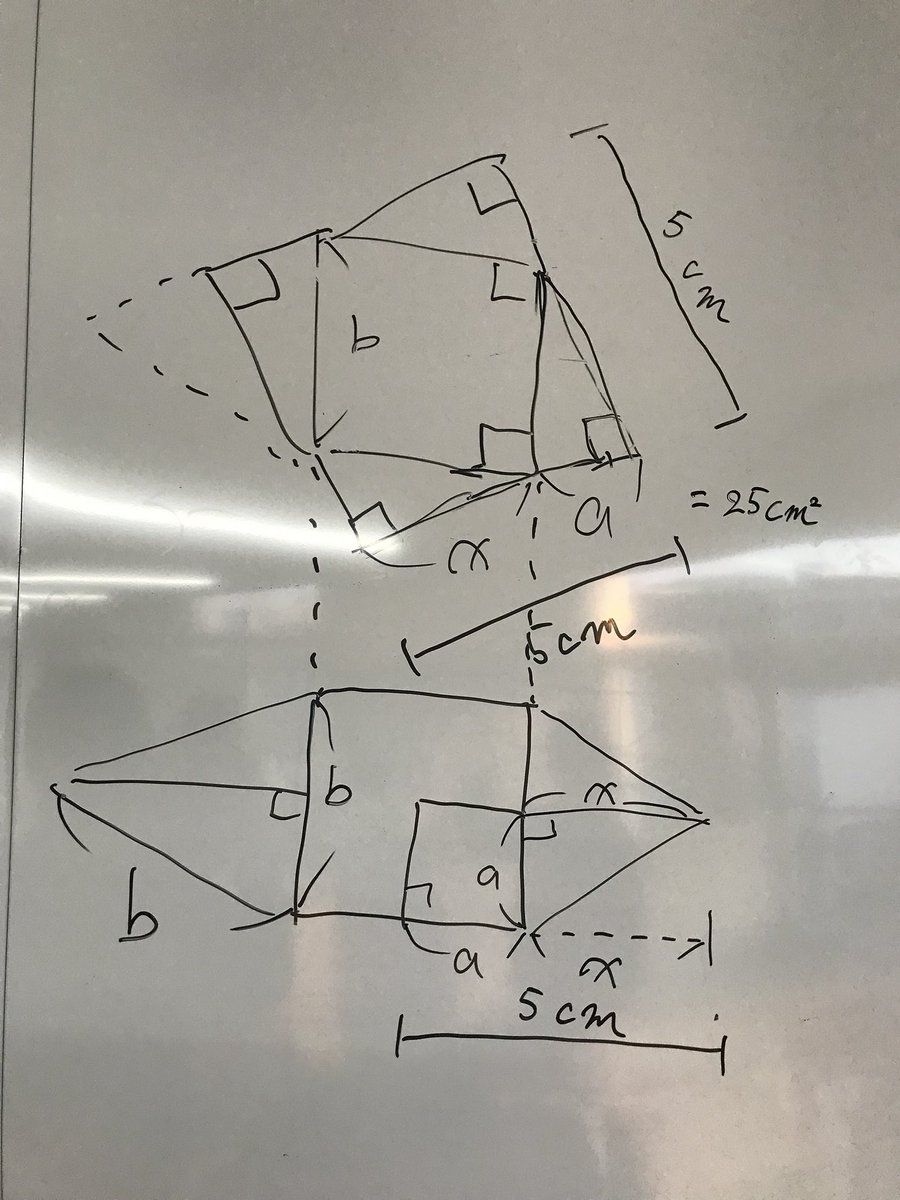 5
cm
b
a
= 25cm²
x
5cm
b
x
a
b
a
x
5cm